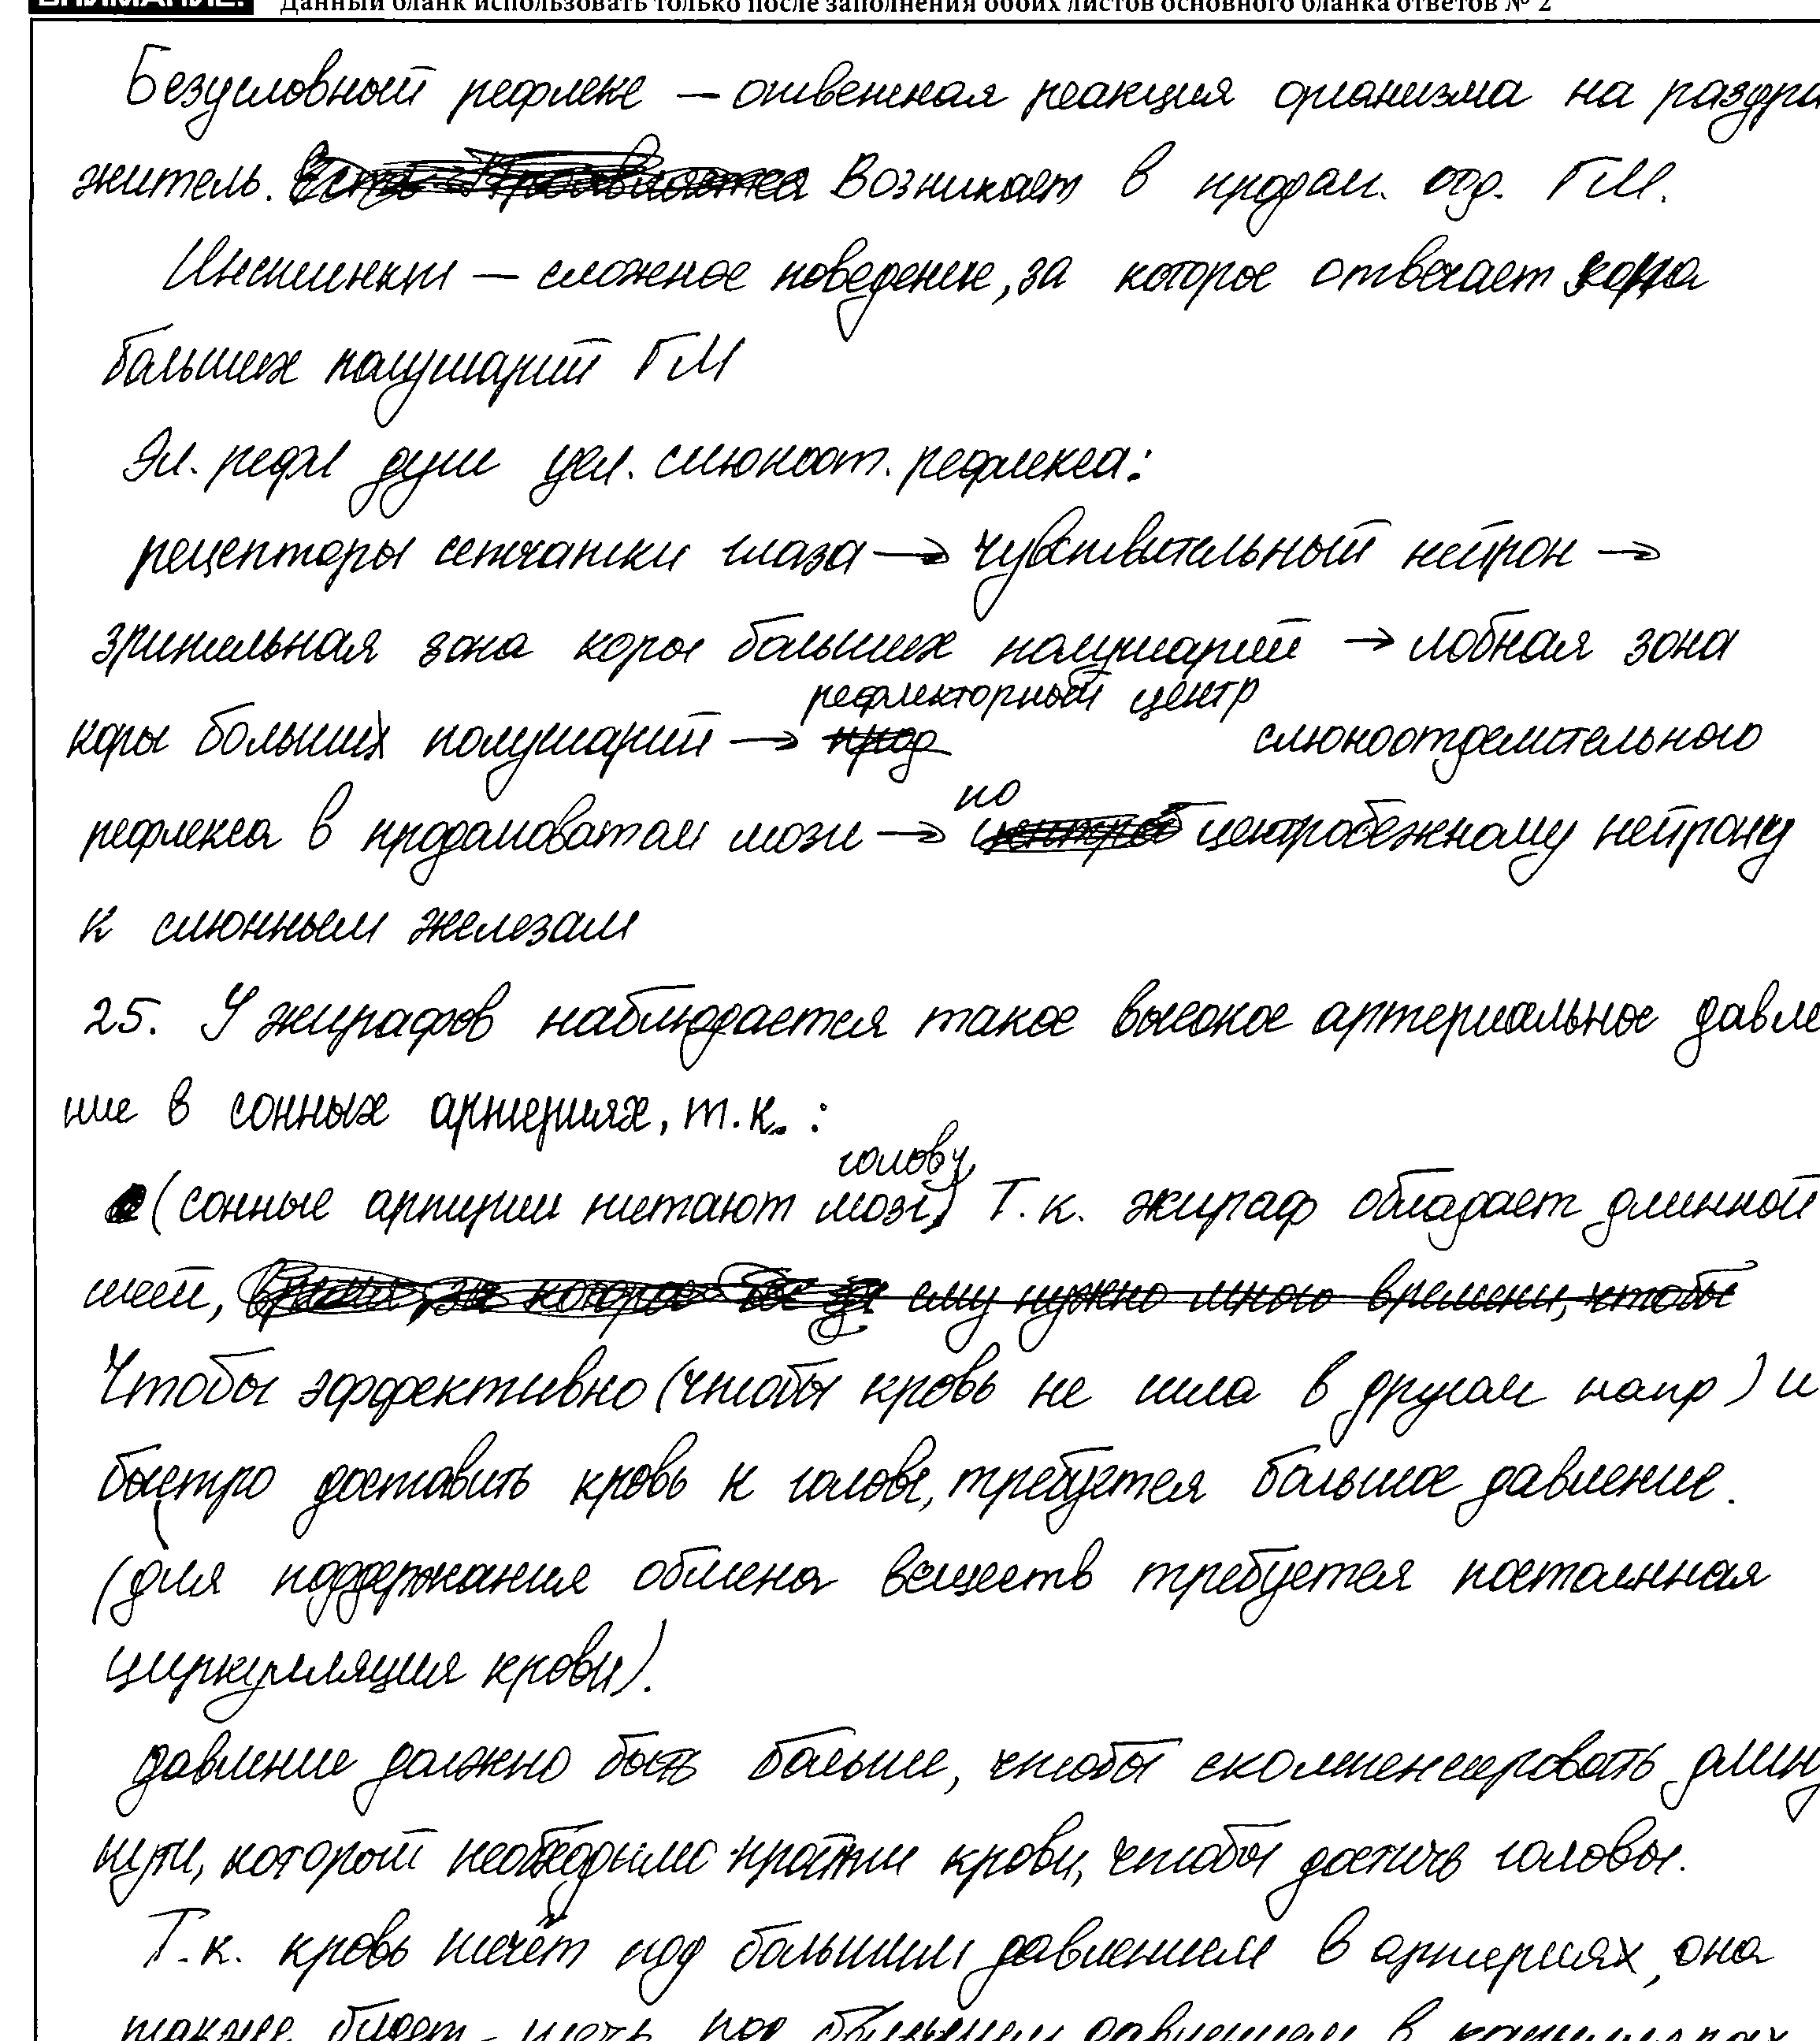 ВНИМАНИЕ! Данный бланк использовать только после заполнения обоих листов основного бланка ответов № 2
Безусловный рефлекс — ответная реакция организма на раздра
житель. Возникает в продол. отд. ГМ.
Инстинкт — сложное поведение, за которое отвечает кора
больших полушарий ГМ
Эл. рефл дуги усл. слюноот. рефлекса:
рецепторы сетчатки глаза → чувствительный нейрон →
зрительная зона коры больших полушарий → лобная зона
рефлекторный центр
коры больших полушарий → прод слюноотделительного
по
рефлекса в продолговатом мозге → центроб центробежному нейрону
к слюнным железам
25. У жирафов наблюдается такое высокое артериальное давле
ние в сонных артериях, т.к. :
голову
(сонные артерии питают мозг) Т.к. жираф обладает длинной
шеей, ему нужно много времени, чтобы
Чтобы эффективно (чтобы кровь не шла в другом напр) и
быстро доставить кровь к голове, требуется большое давление.
(для поддержания обмена веществ требуется постоянная
циркулляция крови).
давление должно быть больше, чтобы скомпенсировать длину
пути, который необходимо пройти крови, чтобы достичь головы.
Т.к. кровь течёт под большим давлением в артериях, она
также будет течь под большим давлением в капиллярах